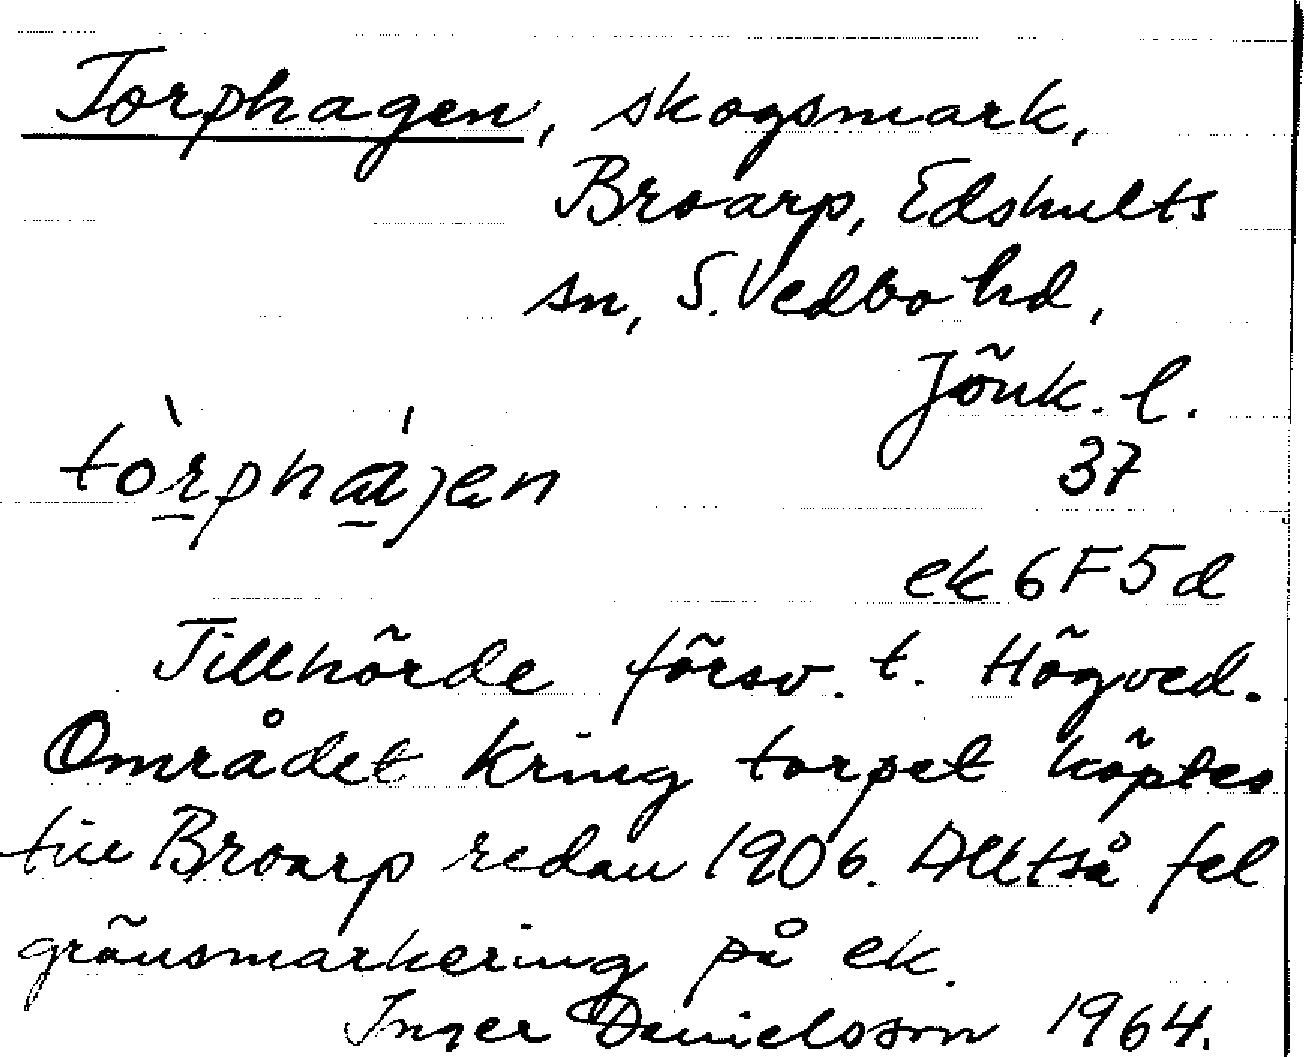 Torphagen, skogsmark,
Broarp, Edshults
sn, S. Vedbo hd,
Jönk. l.
tòrphájen
37
ek 6F5d
Tillhörde försv. t. Högved.
Området kring torpet köptes
till Broarp redan 1906. Alltså fel
gränsmarkering på ek.
Inger Danielsson 1964.